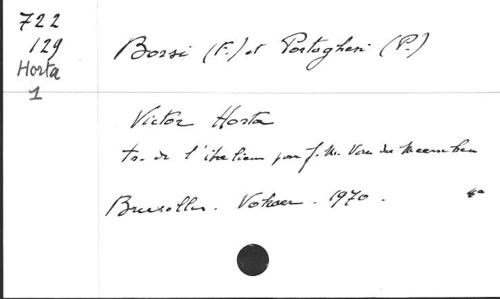 722
129
Horta
1
Borsi (F.) et Portoghesi (P.)
Victor Horta
tr. de l'italien par J. M. Van der Meerschen
Bruxelles. Vokaer. 1970.